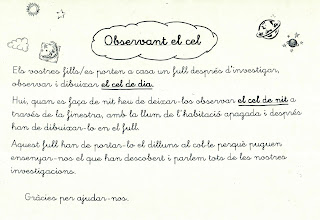 Observant el cel
Els vostres fills/es porten a casa un full després d'investigar,
observar i dibuixar el cel de dia.
Hui, quan es faça de nit heu de deixar-los observar el cel de nit a
través de la finestra, amb la llum de l'habitació apagada i després
han de dibuixar-lo en el full.
Aquest full han de portar-lo el dilluns al col·le perquè puguen
ensenyar-nos el que han descobert i parlem tots de les nostres
investigacions.
Gràcies per ajudar-nos.